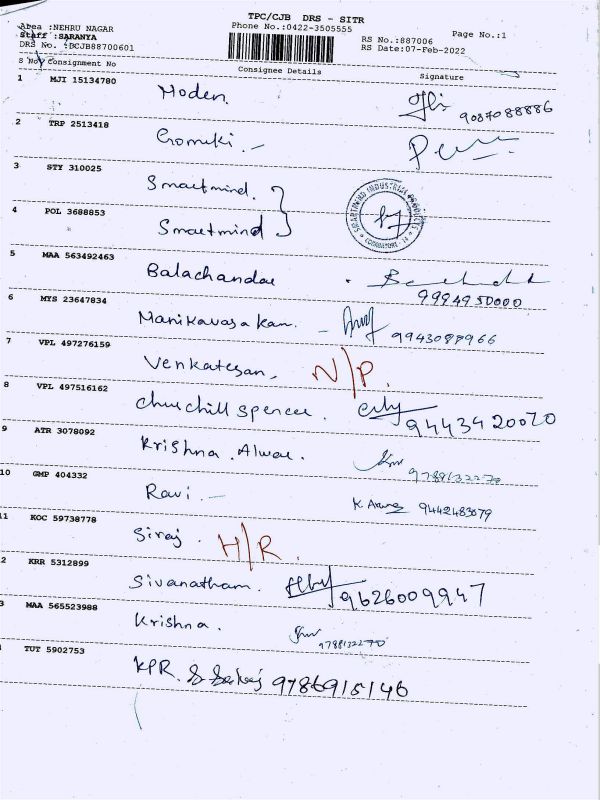 TPC/CJB DRS - SITR
Area :NEHRU NAGAR
Phone No.:0422-3505555
Staff :SARANYA
RS No.:887006
Page No.:1
DRS No. :BCJB88700601
RS Date:07-Feb-2022
S No Consignment No
Consignee Details
Signature
1 MJI 15134780
Moden.
9087088886
2 TRP 2513418
Gomuki. -
3 STY 310025
Smartmind.
SMARTMIND INDUSTRIAL PRODUCTS
COIMBATORE - 14
4 POL 3688853
Smartmind
5 MAA 563492463
Balachandar
9994950000
6 MYS 23647834
Manikavasakam. -
9943087966
7 VPL 497276159
Venkatesan.
N/P.
8 VPL 497516162
Churchill Spencer.
9443420070
9 ATR 3078092
Krishna. Alwar.
9788132270
10 GMP 404332
Ravi. -
K. Arung 9442483079
11 KOC 59738778
Siraj.
H/R.
2 KRR 5312899
Sivanatham.
9626009947
3 MAA 565523988
Krishna.
9788132270
TUT 5902753
KPR. 9786915146